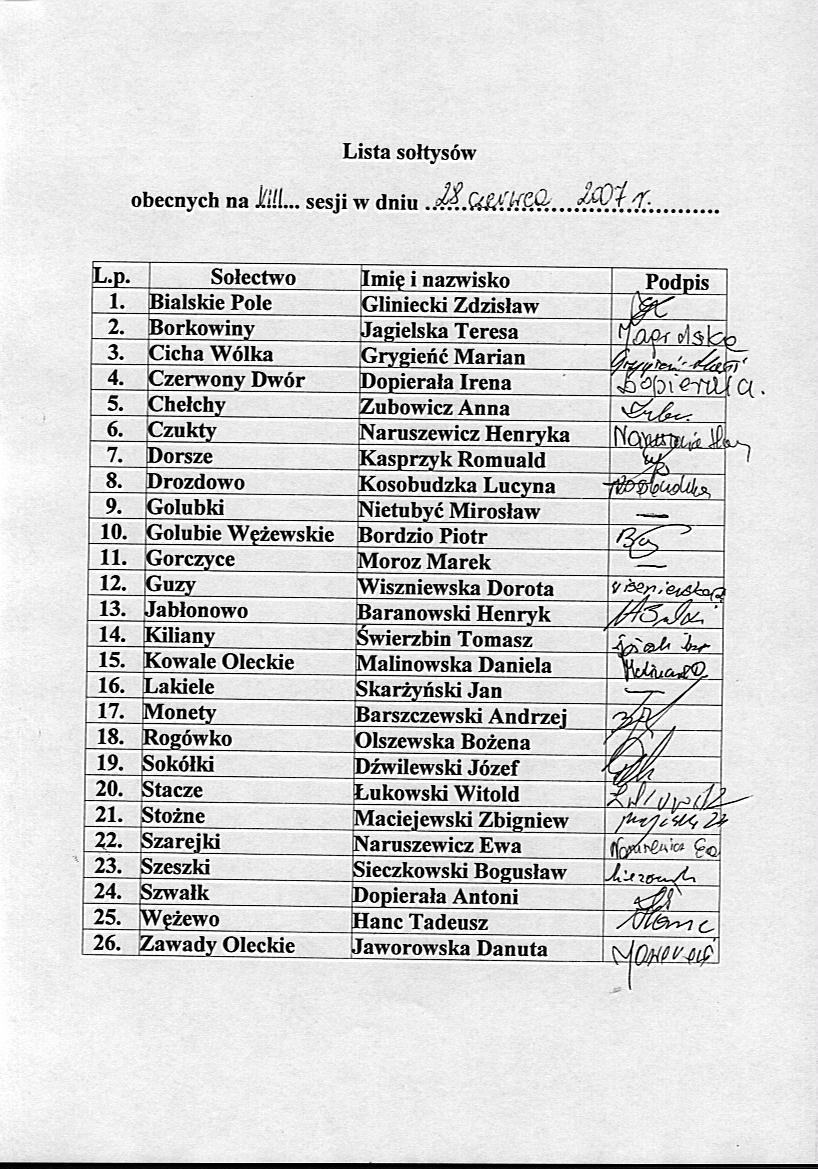 Lista sołtysów
obecnych na VIII... sesji w dniu ..28 czerwca 2007 r...........
L.p. Sołectwo Imię i nazwisko Podpis
1. Bialskie Pole Gliniecki Zdzisław
2. Borkowiny Jagielska Teresa
3. Cicha Wólka Grygieńć Marian
4. Czerwony Dwór Dopierała Irena Dopierała.
5. Chełchy Zubowicz Anna
6. Czukty Naruszewicz Henryka
7. Dorsze Kasprzyk Romuald
8. Drozdowo Kosobudzka Lucyna Kosobudzka
9. Golubki Nietubyć Mirosław —
10. Golubie Wężewskie Bordzio Piotr
11. Gorczyce Moroz Marek —
12. Guzy Wiszniewska Dorota
13. Jabłonowo Baranowski Henryk
14. Kiliany Świerzbin Tomasz
15. Kowale Oleckie Malinowska Daniela
16. Lakiele Skarżyński Jan —
17. Monety Barszczewski Andrzej
18. Rogówko Olszewska Bożena
19. Sokółki Dźwilewski Józef
20. Stacze Łukowski Witold
21. Stożne Maciejewski Zbigniew
22. Szarejki Naruszewicz Ewa
23. Szeszki Sieczkowski Bogusław
24. Szwałk Dopierała Antoni
25. Wężewo Hanc Tadeusz Hanc
26. Zawady Oleckie Jaworowska Danuta